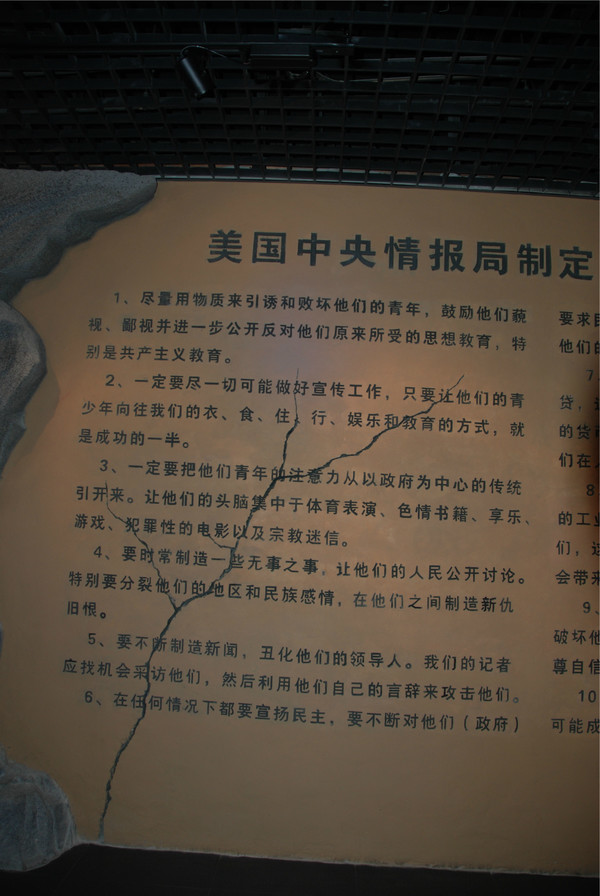 美国中央情报局制定
1、尽量用物质来引诱和败坏他们的青年，鼓励他们藐
视、鄙视并进一步公开反对他们原来所受的思想教育，特
别是共产主义教育。
2、一定要尽一切可能做好宣传工作，只要让他们的青
少年向往我们的衣、食、住、行、娱乐和教育的方式，就
是成功的一半。
3、一定要把他们青年的注意力从以政府为中心的传统
引开来。让他们的头脑集中于体育表演、色情书籍、享乐、
游戏、犯罪性的电影以及宗教迷信。
4、要时常制造一些无事之事，让他们的人民公开讨论。
特别要分裂他们的地区和民族感情，在他们之间制造新仇
旧恨。
5、要不断制造新闻，丑化他们的领导人。我们的记者
应找机会采访他们，然后利用他们自己的言辞来攻击他们。
6、在任何情况下都要宣扬民主，要不断对他们（政府）
要求
他们的
7
贷，
的货
们在
8
的工业
们，
会带来
9、
破坏他
尊自信
10
可能成